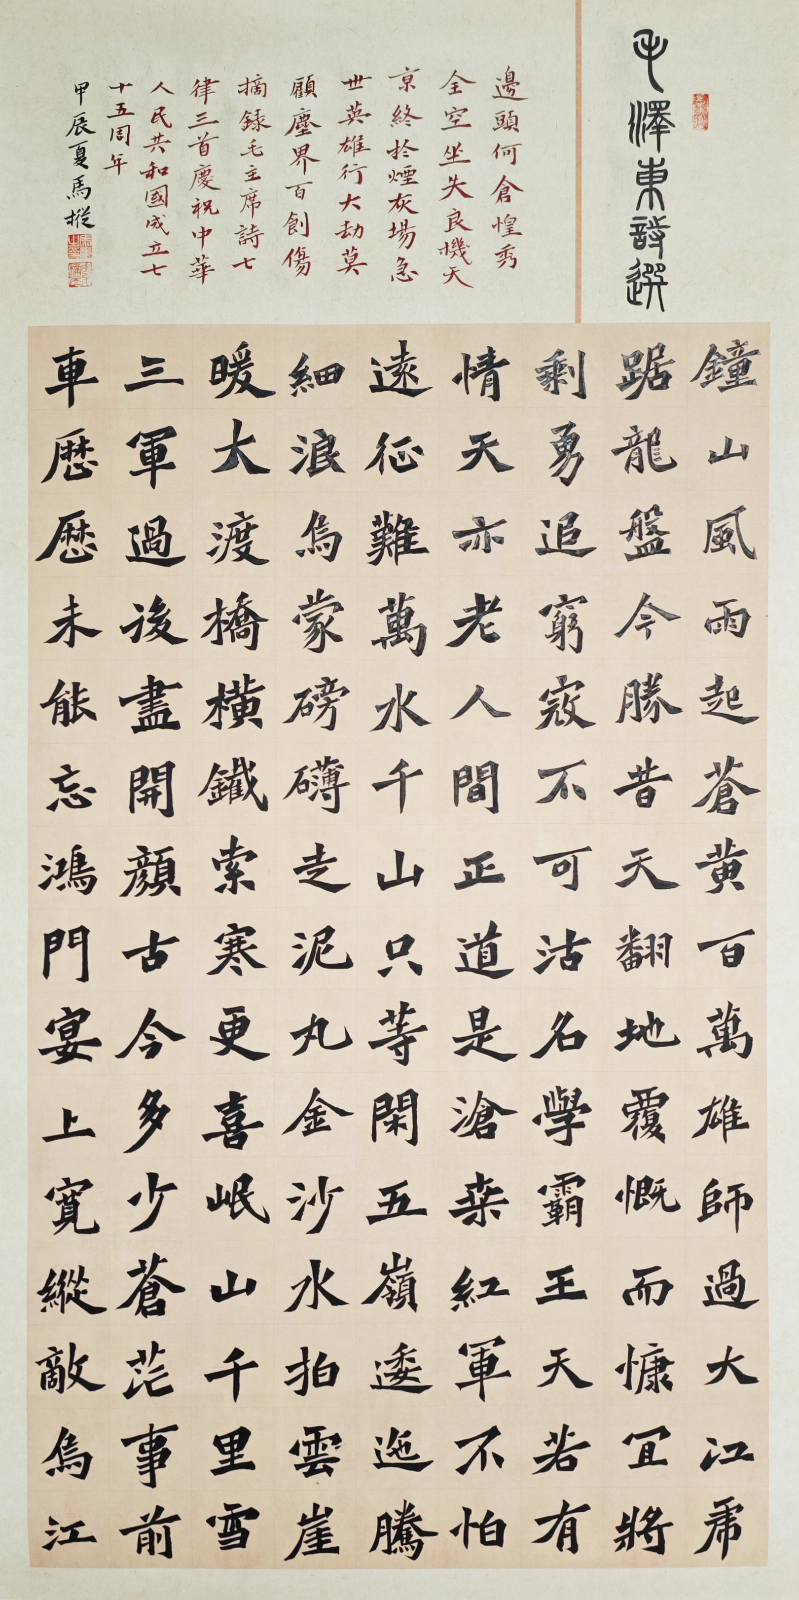 毛澤東詩選
鐘山風雨起蒼黃百萬雄師過大江虎
踞龍盤今勝昔天翻地覆慨而慷宜將
剩勇追窮寇不可沽名學霸王天若有
情天亦老人間正道是滄桒紅軍不怕
遠征難萬水千山只等閑五嶺逶迤騰
細浪烏蒙磅礴走泥丸金沙水拍雲崖
暖大渡橋橫鐵索寒更喜岷山千里雪
三軍過後盡開顏古今多少蒼茫事前
車歷歷未能忘鴻門宴上寬縱敵烏江
邊頭何倉惶秀
全空坐失良機天
京終於煙灰場急
世英雄行大劫莫
顧塵界百創傷
摘錄毛主席詩七
律三首慶祝中華
人民共和國成立七
十五周年
甲辰夏馬